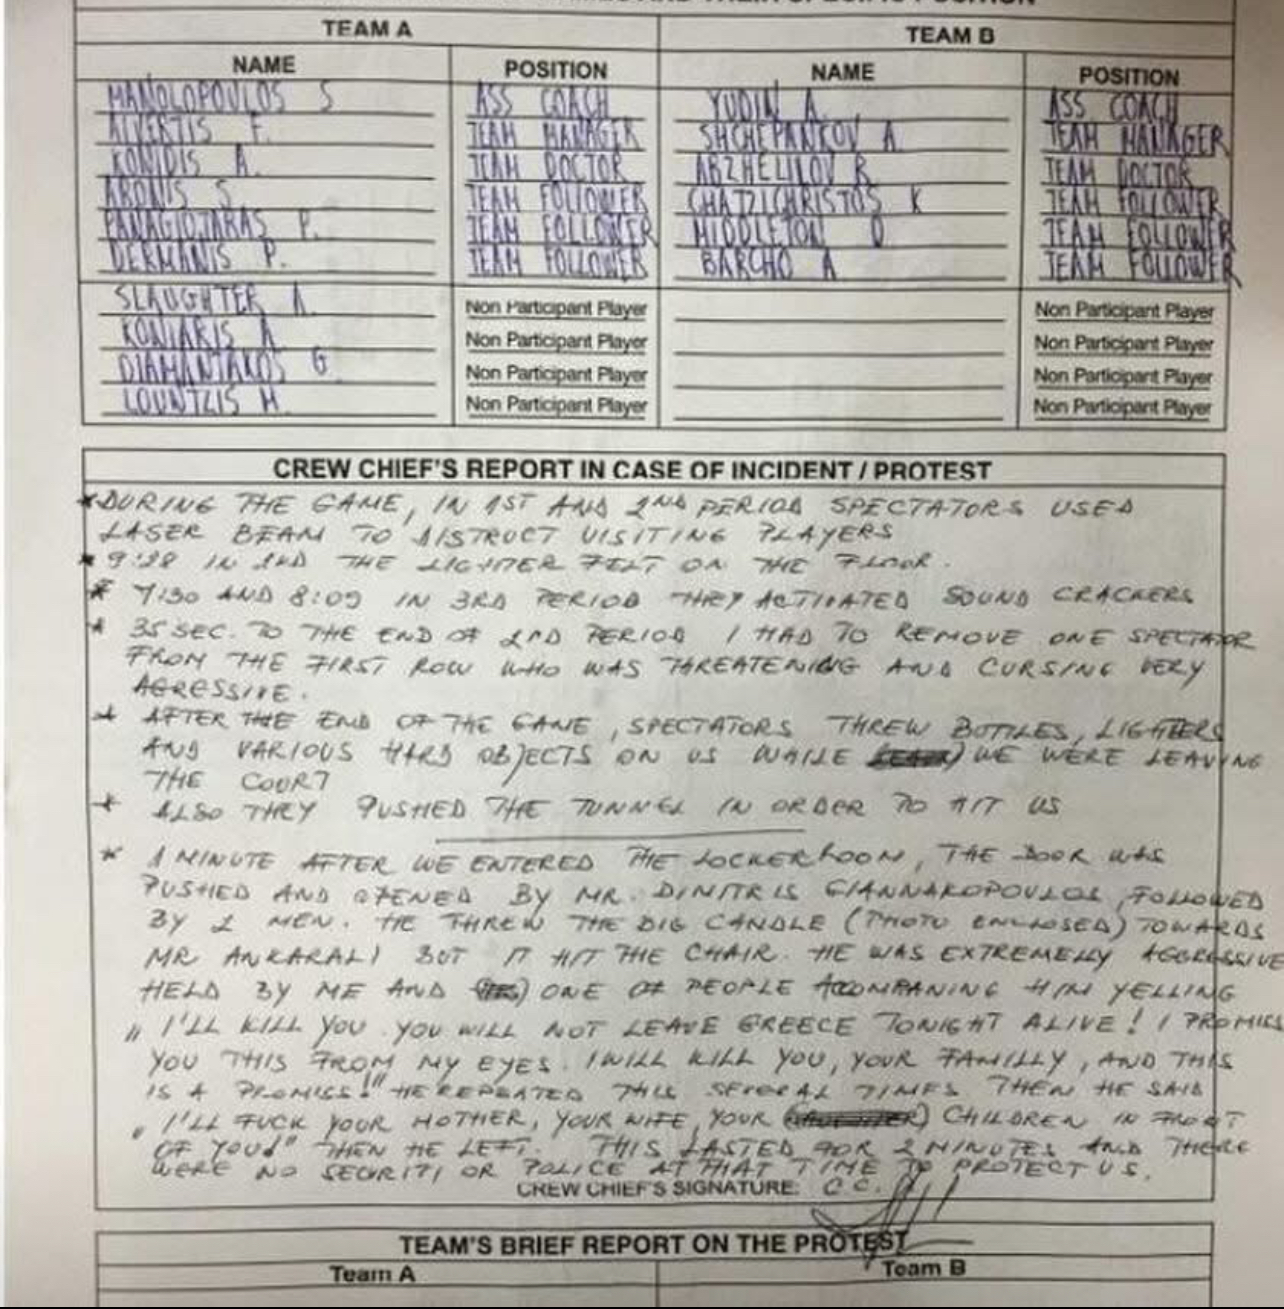 TEAM A TEAM B
NAME POSITION NAME POSITION
MANOLOPOULOS S ASS COACH YUDIN A. ASS COACH
ALVERTIS F. TEAM MANAGER SHCHEPANKOV A TEAM MANAGER
KONIDIS A. TEAM DOCTOR ABZHELILOV R TEAM DOCTOR
ARONIS S TEAM FOLLOWER CHATZICHRISTOS K TEAM FOLLOWER
PANAGIOTARAS P. TEAM FOLLOWER MIDDLETON D TEAM FOLLOWER
DERMANIS P. TEAM FOLLOWER BARCHO A TEAM FOLLOWER
SLAUGHTER A. Non Participant Player Non Participant Player
KONIARIS A Non Participant Player Non Participant Player
DIAMANTAKOS G Non Participant Player Non Participant Player
LOUNTZIS M. Non Participant Player Non Participant Player
CREW CHIEF'S REPORT IN CASE OF INCIDENT / PROTEST
* DURING THE GAME, IN 1ST AND 2ND PERIOD SPECTATORS USED
LASER BEAM TO DISTRUCT VISITING PLAYERS
* 9:28 IN 2ND THE LIGHTER FELT ON THE FLOOR.
* 7:30 AND 8:09 IN 3RD PERIOD THEY ACTIVATED SOUND CRACKERS
* 35 SEC. TO THE END OF 2ND PERIOD I HAD TO REMOVE ONE SPECTATOR
FROM THE FIRST ROW WHO WAS THREATENING AND CURSING VERY
AGRESSIVE.
* AFTER THE END OF THE GAME, SPECTATORS THREW BOTTLES, LIGHTERS
AND VARIOUS HARD OBJECTS ON US WHILE WE WERE LEAVING
THE COURT
* ALSO THEY PUSHED THE TUNNEL IN ORDER TO HIT US
* 1 MINUTE AFTER WE ENTERED THE LOCKERROOM, THE DOOR WAS
PUSHED AND OPENED BY MR. DIMITRIS GIANNAKOPOULOS, FOLLOWED
BY 2 MEN. HE THREW THE BIG CANDLE (PHOTO ENCLOSED) TOWARDS
MR ANKARALI BUT IT HIT THE CHAIR. HE WAS EXTREMELLY AGGRESSIVE
HELD BY ME AND ONE OF PEOPLE ACCOMPANING HIM YELLING
„ I'LL KILL YOU. YOU WILL NOT LEAVE GREECE TONIGHT ALIVE! I PROMISS
YOU THIS FROM MY EYES. I WILL KILL YOU, YOUR FAMILLY, AND THIS
IS A PROMISS!" HE REPEATED THIS SEVERAL TIMES THEN HE SAID
„ I'LL FUCK YOUR MOTHER, YOUR WIFE, YOUR CHILDREN IN FRONT
OF YOU!" THEN HE LEFT. THIS LASTED FOR 2 MINUTES AND THERE
WERE NO SECURITI OR POLICE AT THAT TIME TO PROTECT US.
CREW CHIEF'S SIGNATURE: C.C.
TEAM'S BRIEF REPORT ON THE PROTEST
Team A Team B